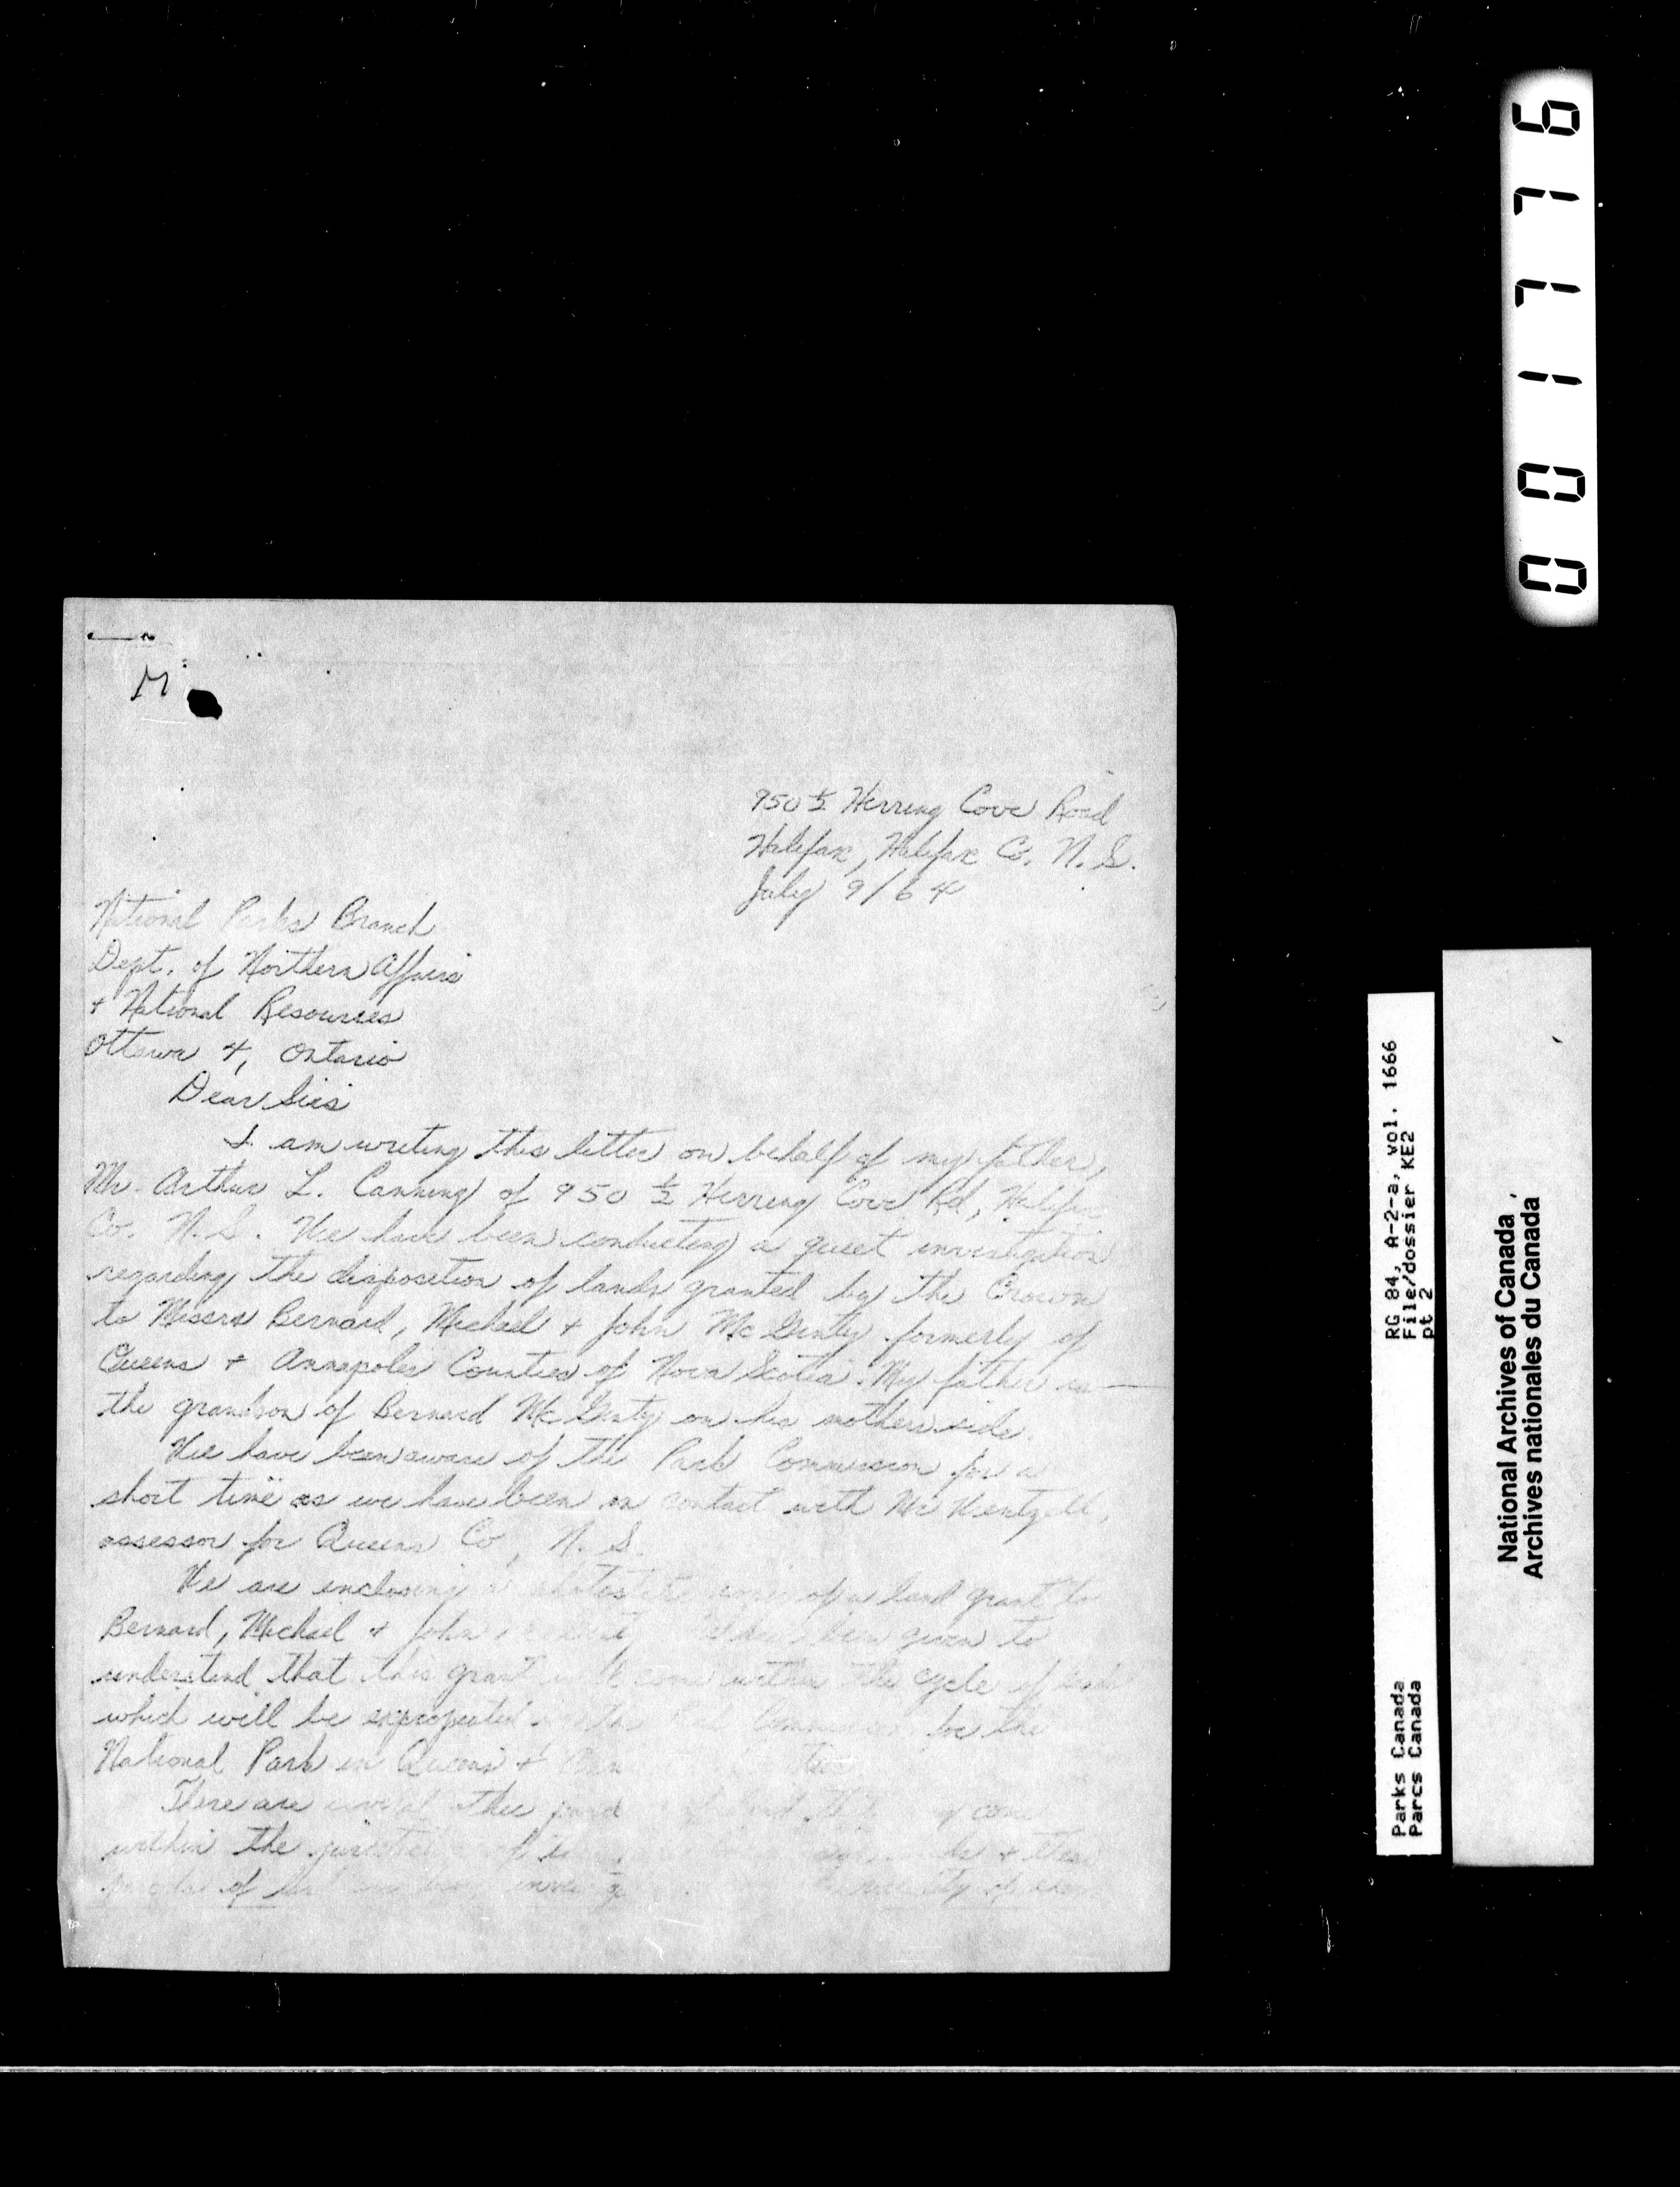 M
950 ½ Herring Cove Road
Halifax, Halifax Co. N. S.
July 9/64
National Parks Branch
Dept. of Northern Affairs
+ National Resources
Ottawa 4, Ontario
Dear Sirs
I am writing this letter on behalf of my father,
Mr. Arthur L. Canning of 950 ½ Herring Cove Rd, Halifax
Co. N.S. We have been conducting a quiet investigation
regarding the disposition of lands granted by the Crown
to Messrs Bernard, Michael + John McGinty formerly of
Queens + Annapolis Counties of Nova Scotia. My father is
the grandson of Bernard McGinty on his mothers side.
We have been aware of the Park Commission for a
short time as we have been in contact with Mr Wentzell,
assessor for Queens Co, N. S.
We are enclosing a copy of a land grant to
Bernard, Michael + John been given to
understand that this grant will come within the cycle of
which will be Commission for the
National Park in Queens +
There are several other land come
within the + these
of of
001776
RG 84, A-2-a, vol. 1666
File/dossier KE2
pt 2
Parks Canada
Parcs Canada
National Archives of Canada
Archives nationales du Canada